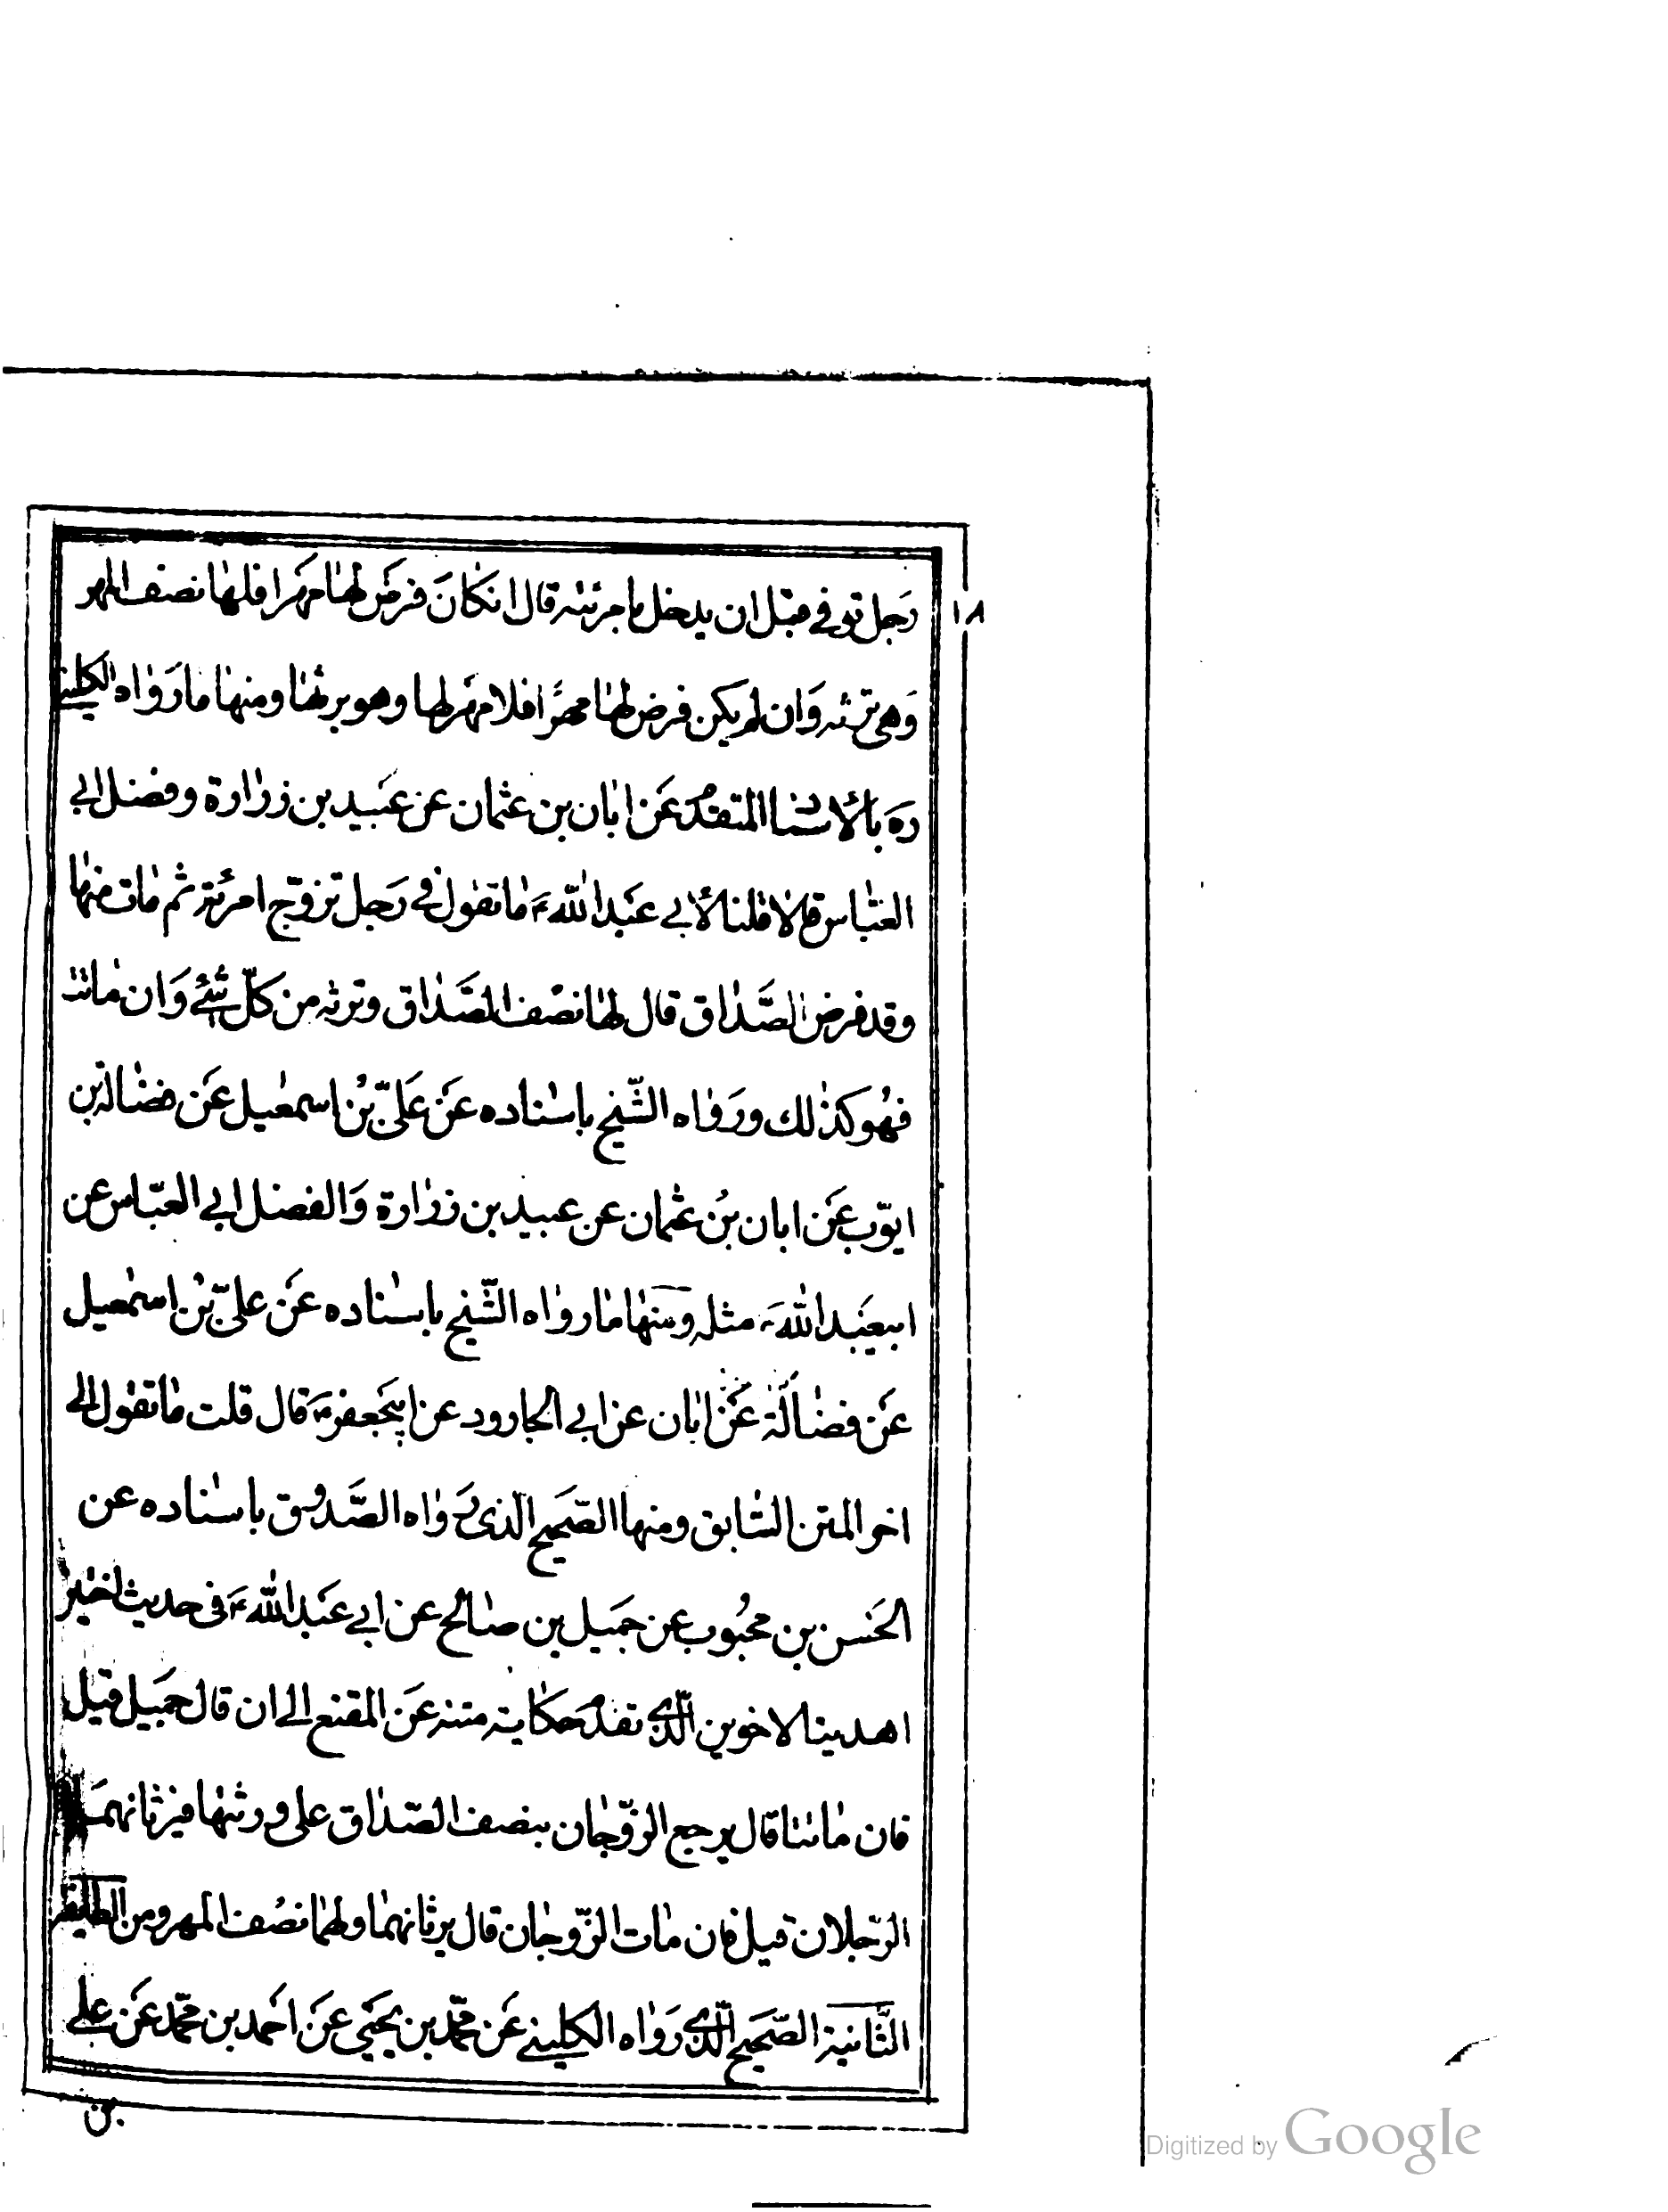 ١٨
رجل توفي قبل ان يدخل بامرئته قال انكان فرض لها مهرا فلها نصف المهر
وهي ترثه وان لم يكن فرض لها مهرا فلا مهر لها وهو يرثها ومنها ما رواه الكليني
ره بالاسناد المتقدم عن ابان بن عثمان عن عبيد بن زرارة وفضل ابي
العباس قالا قلنا لابي عبد الله ع ما تقول في رجل تزوج امرئة ثم مات عنها
وقد فرض الصداق قال لها نصف الصداق وترثه من كل شيء وان ماتت
فهو كذلك ورواه الشيخ باسناده عن علي بن اسمعيل عن فضالة بن
ايوب عن ابان بن عثمان عن عبيد بن زرارة والفضل ابي العباس عن
ابيعبد الله ع مثله ومنها ما رواه الشيخ باسناده عن علي بن اسمعيل
عن فضالة عن ابان عن ابي الجارود عن ابيجعفر ع قال قلت ما تقول الى
اخر المتن السابق ومنها الصحيح الذي رواه الصدوق باسناده عن
الحسن بن محبوب عن جميل بن صالح عن ابي عبد الله ع في حديث اختين
اهديتا لاخوين الذي تقدم حكاية متنه عن المقنع الى ان قال جميل قيل
فان ماتتا قال يرجع الزوجان بنصف الصداق على ورثتها فيرثانهما
الرجلان قيل فان مات الزوجان قال يرثانهما ولهما نصف المهر ومن الطايفة
الثانية الصحيح الذي رواه الكليني عن محمد بن يحيى عن احمد بن محمد عن علي
بن
Digitized by Google